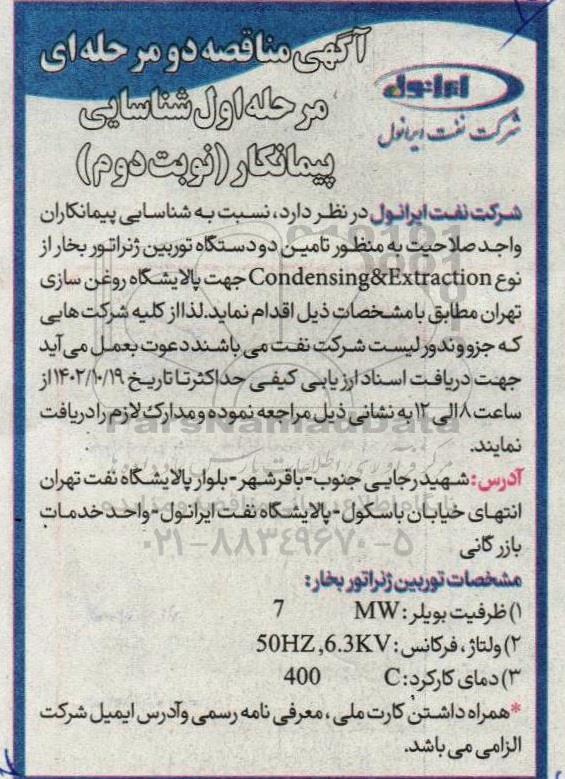 آگهی مناقصه دو مرحله ای
مرحله اول شناسایی
پیمانکار (نوبت دوم)
ایرانول
شرکت نفت ایرانول
شرکت نفت ایرانول در نظر دارد، نسبت به شناسایی پیمانکاران
واجد صلاحیت به منظور تامین دو دستگاه توربین ژنراتور بخار از
نوع Condensing&Extraction جهت پالایشگاه روغن سازی
تهران مطابق با مشخصات ذیل اقدام نماید. لذا از کلیه شرکت هایی
که جزو وندور لیست شرکت نفت می باشند دعوت بعمل می آید
جهت دریافت اسناد ارزیابی کیفی حداکثر تا تاریخ ۱۴۰۲/۱۰/۱۹ از
ساعت ۸ الی ۱۲ به نشانی ذیل مراجعه نموده و مدارک لازم را دریافت
نمایند.
آدرس: شهید رجایی جنوب - باقرشهر - بلوار پالایشگاه نفت تهران
انتهای خیابان باسکول - پالایشگاه نفت ایرانول - واحد خدمات
بازرگانی
مشخصات توربین ژنراتور بخار:
۱) ظرفیت بویلر: MW 7
۲) ولتاژ، فرکانس: 50HZ ,6.3KV
۳) دمای کارکرد: C 400
*همراه داشتن کارت ملی، معرفی نامه رسمی وآدرس ایمیل شرکت
الزامی می باشد.
ParsNamadData
۰۲۱-۸۸۳۴۹۶۷۰-۵